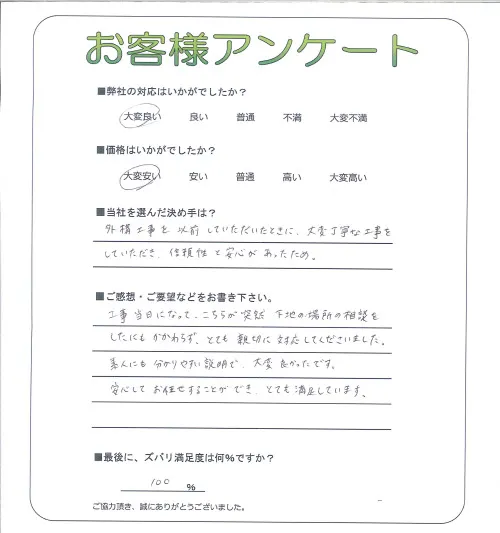 お客様アンケート
■弊社の対応はいかがでしたか？
大変良い 良い 普通 不満 大変不満
■価格はいかがでしたか？
大変安い 安い 普通 高い 大変高い
■当社を選んだ決め手は？
外構工事を以前していただいたときに、大変丁寧な工事を
していただき、信頼性と安心があったため。
■ご感想・ご要望などをお書き下さい。
工事当日になって、こちらが突然下地の場所の相談を
したにもかかわらず、とても親切に対応してくださいました。
素人にも分かりやすい説明で、大変良かったです。
安心してお任せすることができ、とても満足しています。
■最後に、ズバリ満足度は何％ですか？
100 ％
ご協力頂き、誠にありがとうございました。